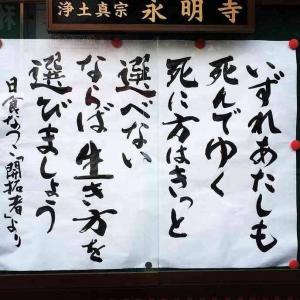 浄土真宗 永明寺
いずれあたしも
死んでゆく
死に方はきっと
選べない
ならば生き方を
選びましょう
日食なつこ「開拓者」より